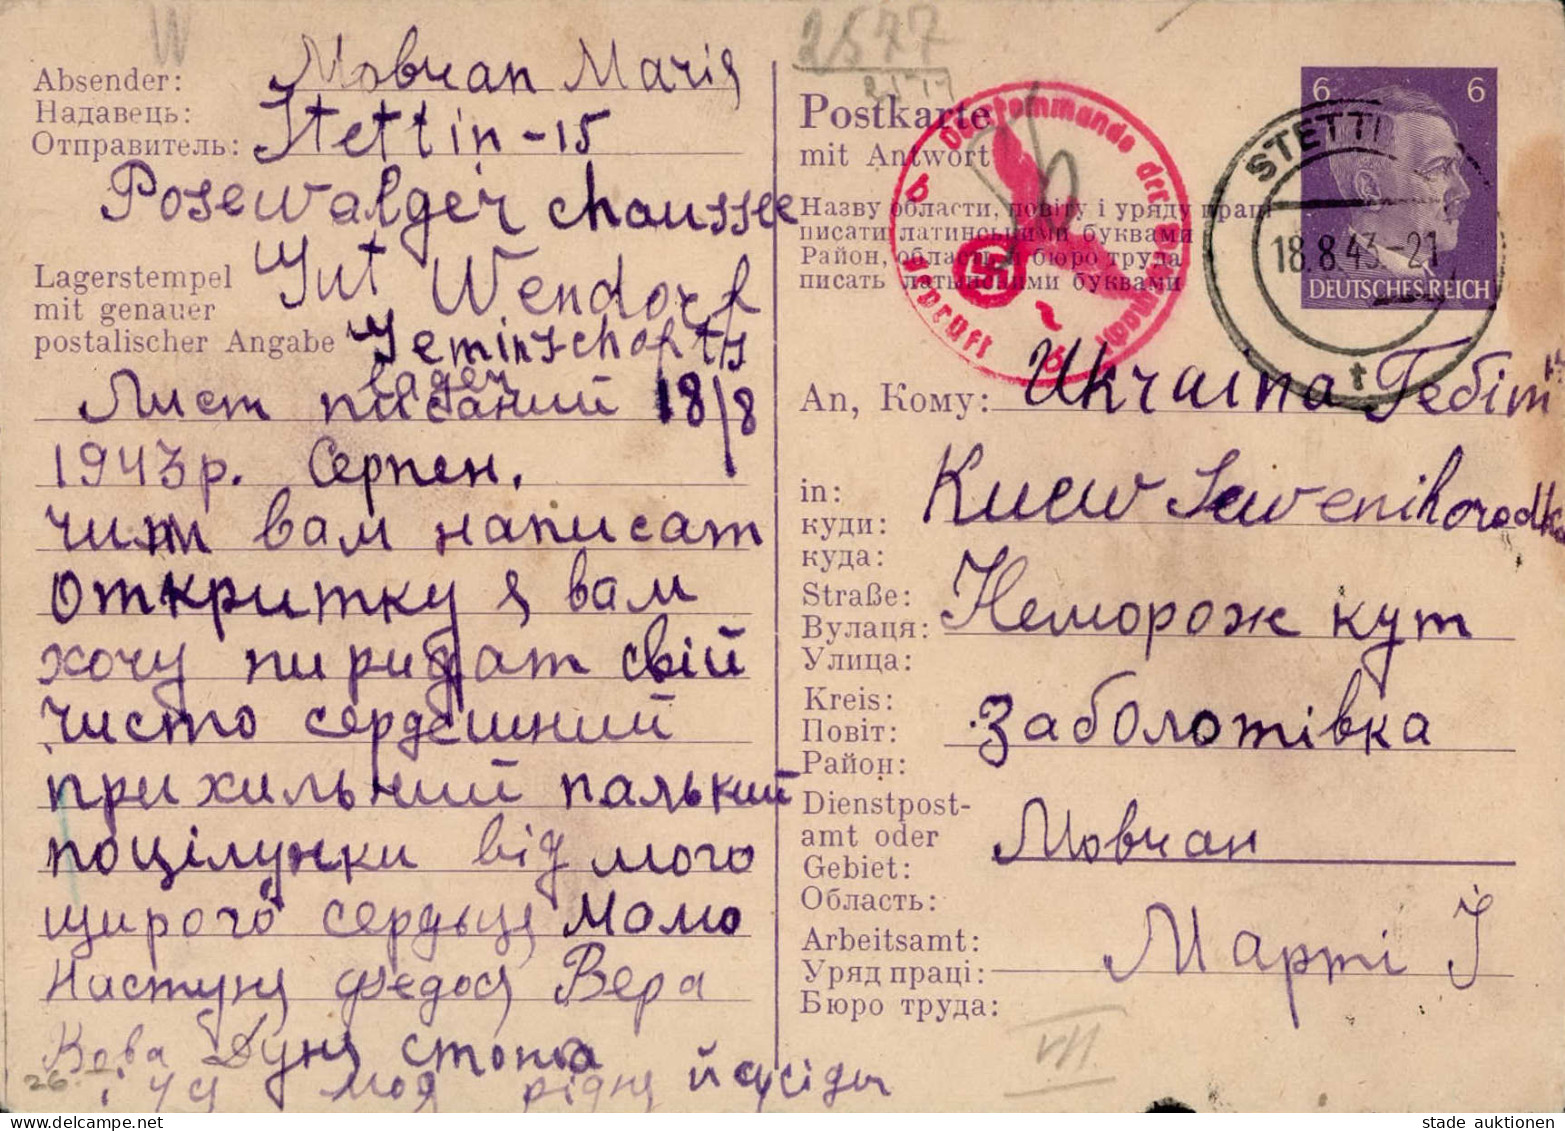 2577
Absender:
Надавець:
Отправитель:
Мовчан Магія
Stettin-15
Posewalger chaussee
Gut Wendorf
Lagerstempel
mit genauer
postalischer Angabe
Geminschofts
lager
Лист писаний 18/8
1943р. Серпен.
чим вам написат
откритку я вам
хочу пиридат свій
чисто сердешний
прихильний палький
поцілунки від мого
щирого сердьця мамо
Настуня федося Вера
Вова Дуня стопа
і уся моя рідня й сусіди
26.
Postkarte
mit Antwort
Назву области, повіту і уряду праці
писати латинськими буквами
Район, область и бюро труда
писать латынскими буквами
Oberkommando der Wehrmacht
geprüft
b b
6 6
STETTI
18.8.43.-21
t
DEUTSCHES REICH
An, Кому: Ukraina Гебіт
in:
куди:
куда:
Kuew Sewenihorodka
Straße:
Вулаця:
Улица:
Неморож кут
Kreis:
Повіт:
Район:
Заболотівка
Dienstpost-
amt oder
Gebiet:
Область:
Мовчан
Arbeitsamt:
Уряд праці:
Бюро труда:
Марті І
VII.
stade auktionen